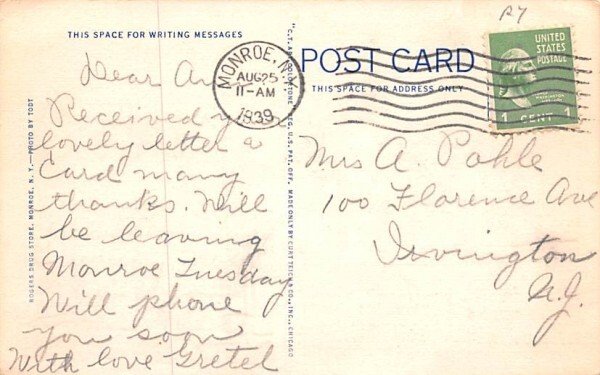 THIS SPACE FOR WRITING MESSAGES
Dear
Received
lovely letter &
Card many
thanks. Will
be leaving
Monroe Tuesday
Will phone
you soon
With love Gretel
ROGERS DRUG STORE, MONROE, N. Y.—PHOTO BY TODT
MONROE, N.Y.
AUG 25
11-AM
1939
"C.T. ART-COLORTONE" REG. U.S. PAT. OFF. MADE ONLY BY CURT TEICH & CO., INC., CHICAGO
POST CARD
THIS SPACE FOR ADDRESS ONLY
UNITED
STATES
POSTAGE
1 CENT 1
Mrs A. Pohle
100 Florence Ave
Irvington
N.J.